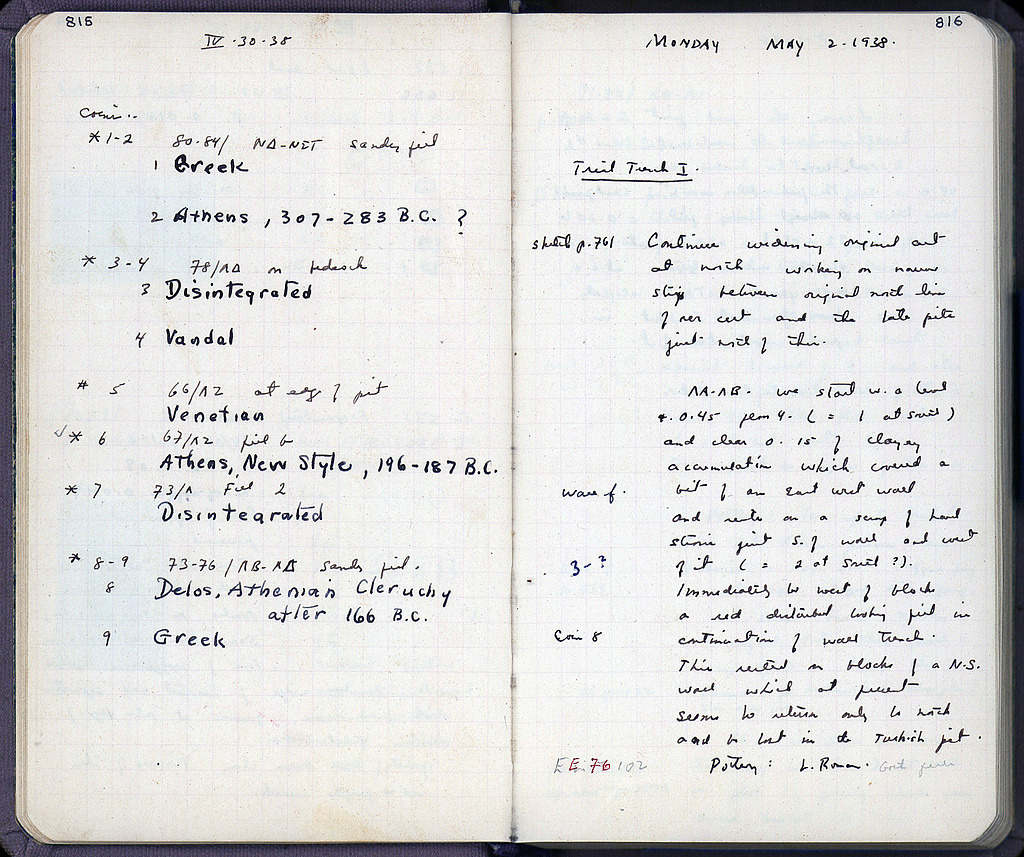 815
IV·30·38
Coins..
*1-2 80-84/ sandy fill
1 Greek
2 Athens, 307-283 B.C. ?
* 3-4 78/ΛΔ on bedrock
3 Disintegrated
4 Vandal
* 5 66/ΛΖ at edge of pit
Venetian
√ * 6 67/ΛΖ fill
Athens, New Style, 196-187 B.C.
* 7 73/Λ Fill 2
Disintegrated
* 8-9 73-76/ΛΒ-ΛΔ sandy fill.
8 Delos, Athenian Cleruchy
after 166 B.C.
9 Greek
816
MONDAY MAY 2·1938.
Trial Trench I.
sketch p.761 Continue widening original cut
at north working on narrow
strip between original north line
of our cut and the late pits
just north of this.
ΛΑ-ΛΒ. we start w. a level
0.45 ( = 1 at south)
and clear 0.15 of clayey
accumulation which covered a
wave f. bit of an East west wall
and rests on a scrap of hard
stroses just S. of wall and west
3-? of it ( = 2 at south ?).
Immediately to west of blocks
a red disturbed looking fill in
Coin 8 continuation of wall trench.
This rested on blocks of a N.S.
wall which at present
seems to return only to north
and be lost in the Turkish pit.
EE 76 102 Pottery: L. Roman.